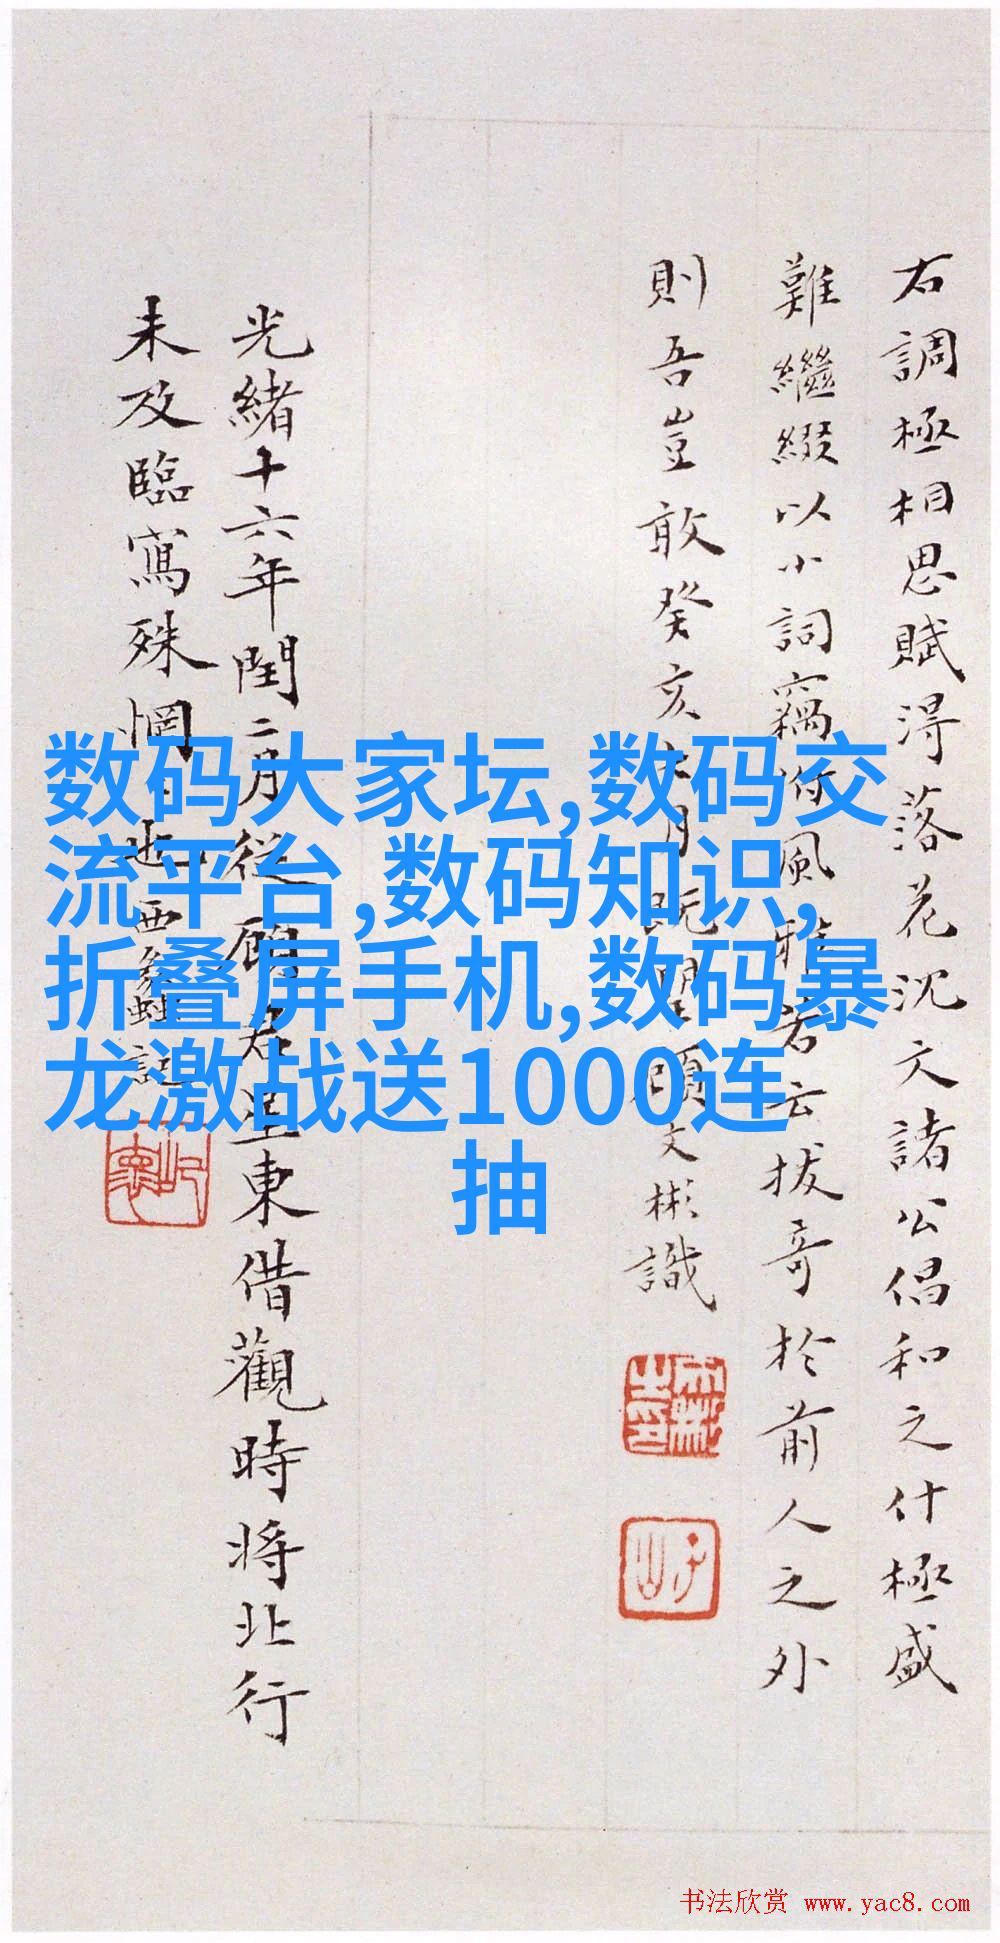 右調極相思賦得落花沉文諸公倡和之什極盛
難繼綴以小詞竊附風雅若云拔奇於前人之外
則吾豈敢癸亥七月既望顧文彬識
光緒十六年閏二月從顧君星東借觀時將北行
未及臨寫殊惘惘也西蠡記
数码大家坛,数码交
流平台,数码知识,
折叠屏手机,数码暴
龙激战送1000连
抽
书法欣赏 www.yac8.com